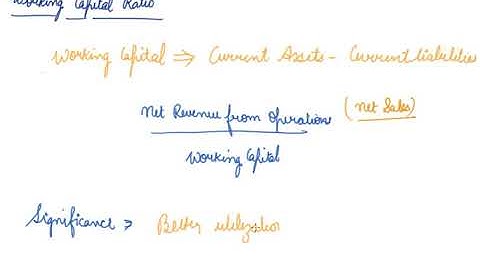 Working Capital Ratio
Working Capital ⇒ Current Assets - Current liabilities
Net Revenue from Operations (net Sales)
Working Capital
Significance > Better utilization